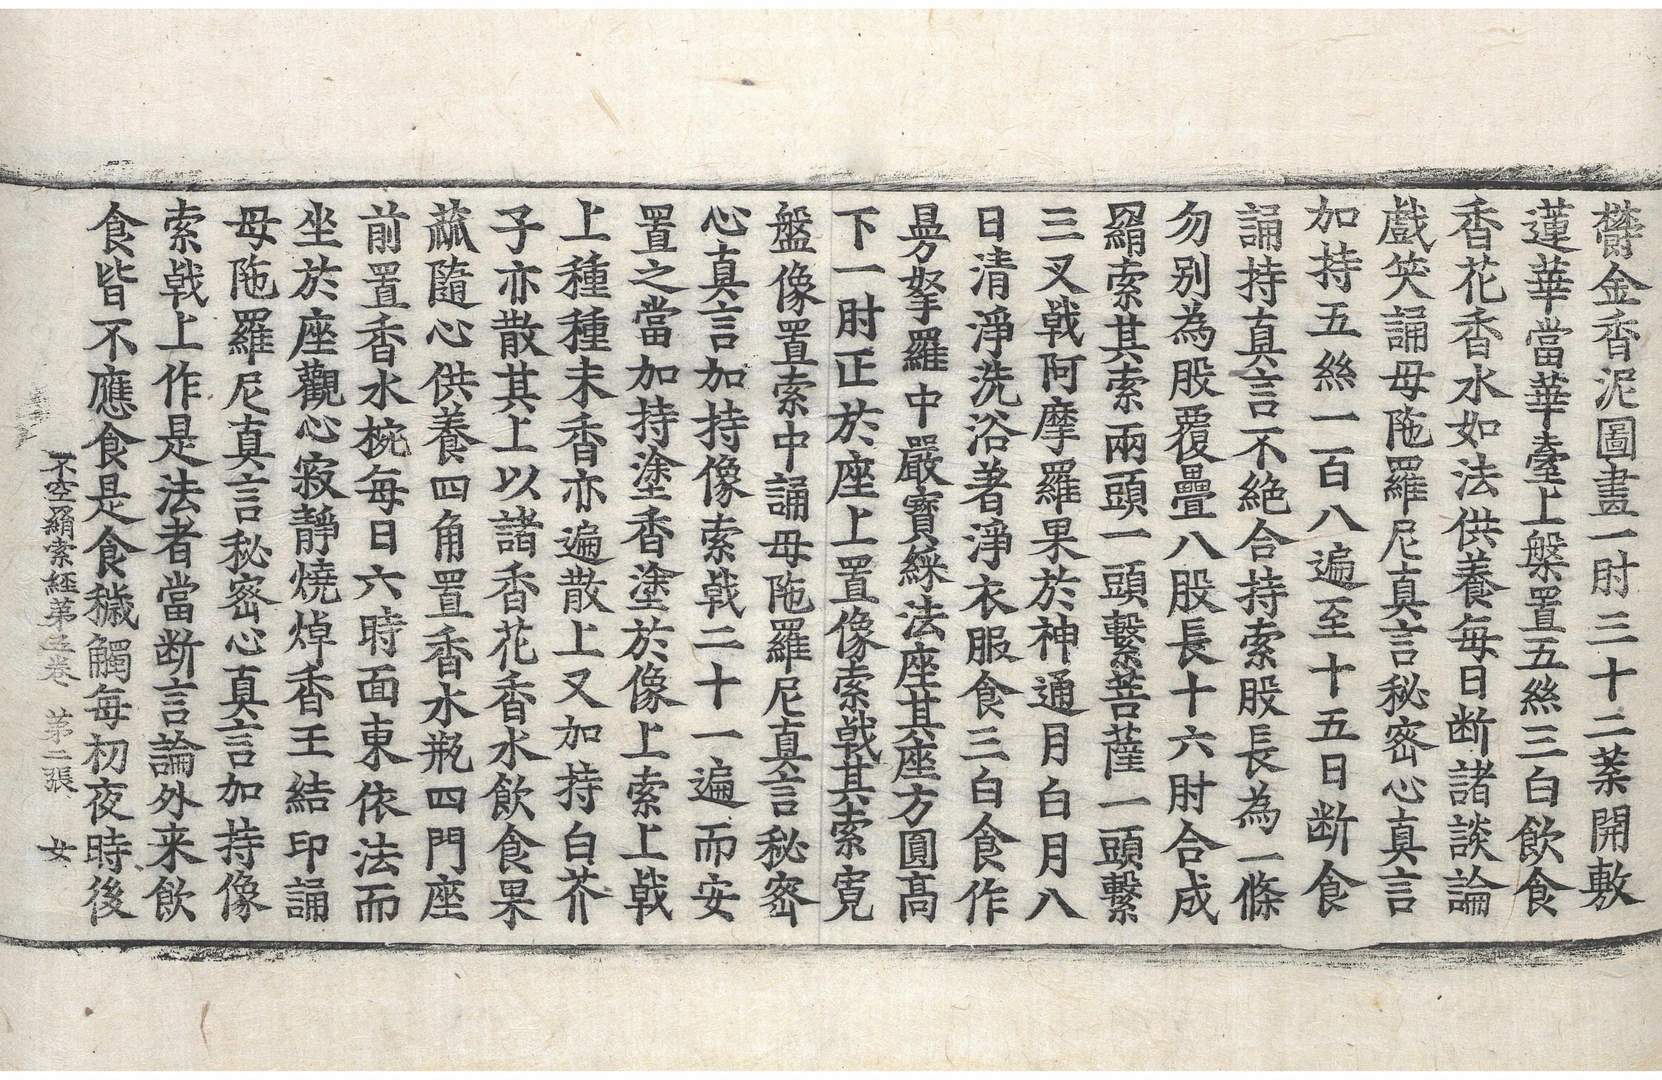 欝金香泥圖畫一肘三十二葉開敷
蓮華當華臺上槃置五絲三白飲食
香花香水如法供養每日断諸談論
戲笑誦母陁羅尼真言秘密心真言
加持五絲一百八遍至十五日断食
誦持真言不絕合持索股長為一條
勿別為股覆疊八股長十六肘合成
羂索其索兩頭一頭繫菩薩一頭繫
三叉戟阿摩羅果於神通月白月八
日清淨洗浴著淨衣服食三白食作
曼拏羅中嚴寶綵法座其座方圓高
下一肘正於座上置像索戟其索寬
盤像置索中誦母陁羅尼真言秘密
心真言加持像索戟二十一遍而安
置之當加持塗香塗於像上索上戟
上種種末香亦遍散上又加持白芥
子亦散其上以諸香花香水飲食果
蓏隨心供養四角置香水瓶四門座
前置香水椀每日六時面東依法而
坐於座觀心寂靜燒焯香王結印誦
母陁羅尼真言秘密心真言加持像
索戟上作是法者當断言論外来飲
食皆不應食是食穢觸每初夜時後
不空羂索經第五卷 第二張 女